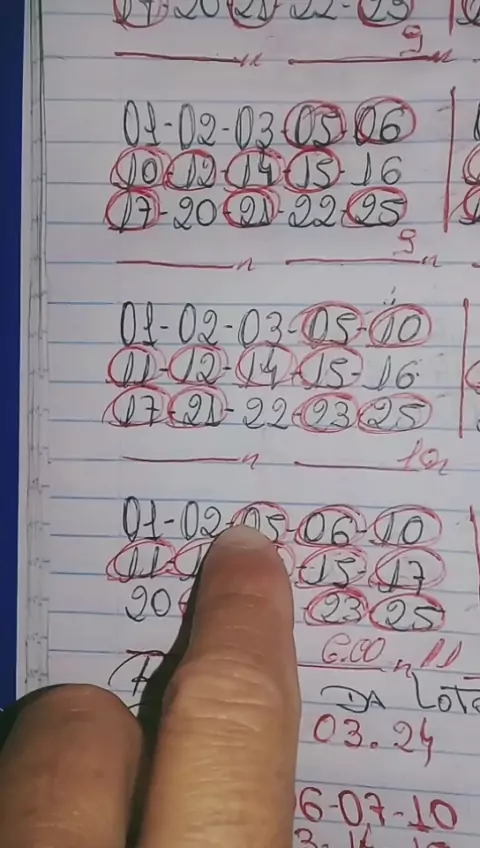 20-21-22-23
9
01-02-03-05-06
10-12-14-15-16
17-20-21-22-25
9
01-02-03-05-10
11-12-14-15-16
17-21-22-23-25
10
01-02-05-06-10
11 15-17
20 23-25
6.00 11
DA LOT
03.24
6-07-10